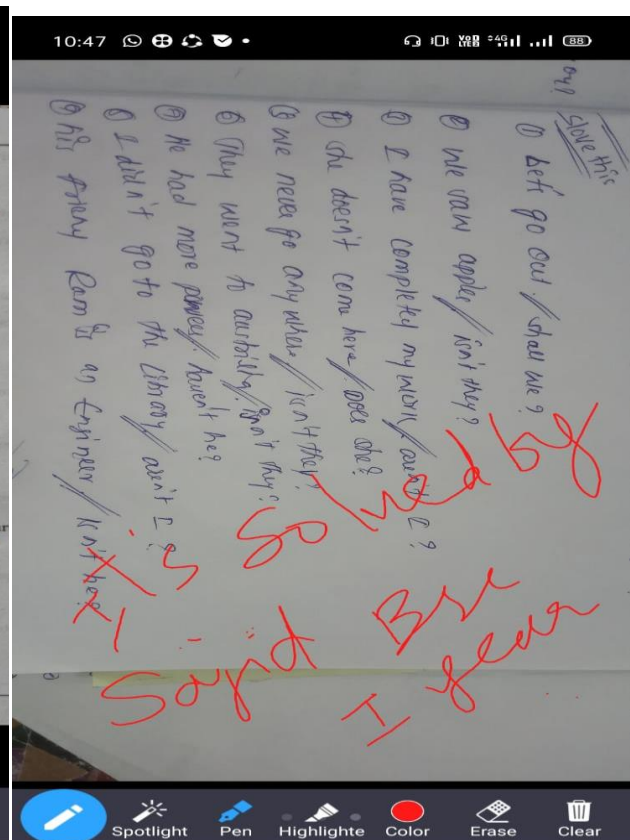 10:47
VoD LTE 4G 88
Slove this
① Let's go out // shall we?
② We saw apples // isn't they?
③ I have completed my work // aren't I?
④ she doesn't come here // does she?
⑤ we never go anywhere // isn't they?
⑥ They went to // isn't they?
⑦ He had more // haven't he?
⑧ I didn't go to the Library // aren't I?
⑨ his Ram is an Engineer // isn't he?
It's Solved by
Sajid Bsc
I year
Spotlight Pen Highlighte Color Erase Clear